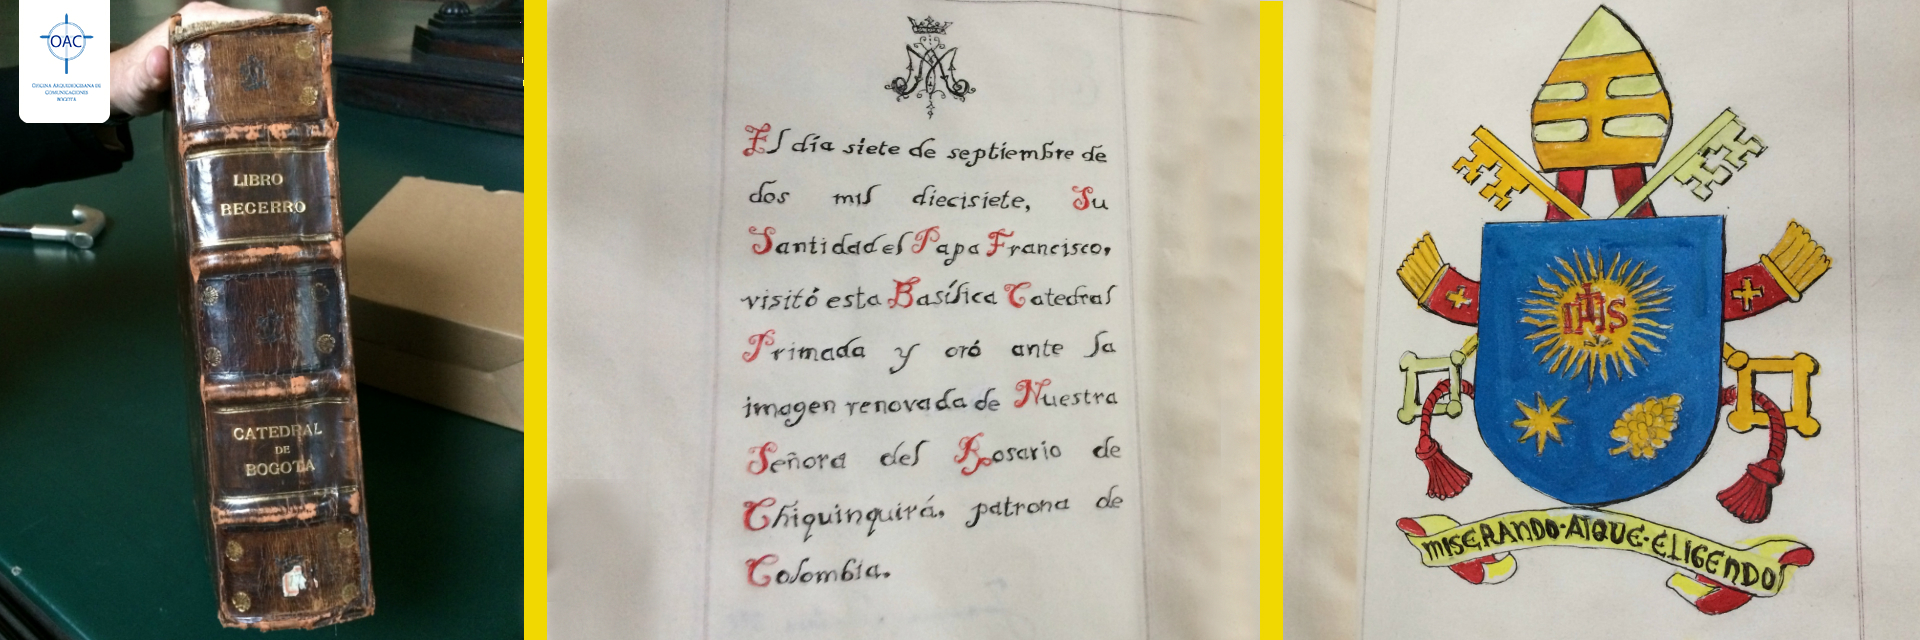 OAC
OFICINA ARQUIDIOCESANA DE
COMUNICACIONES
BOGOTÁ
LIBRO
BECERRO
CATEDRAL
DE
BOGOTA
El día siete de septiembre de
dos mil diecisiete, Su
Santidad el Papa Francisco,
visitó esta Basílica Catedral
Primada y oró ante la
imagen renovada de Nuestra
Señora del Rosario de
Chiquinquirá, patrona de
Colombia.
IHS
MISERANDO·ATQUE·ELIGENDO